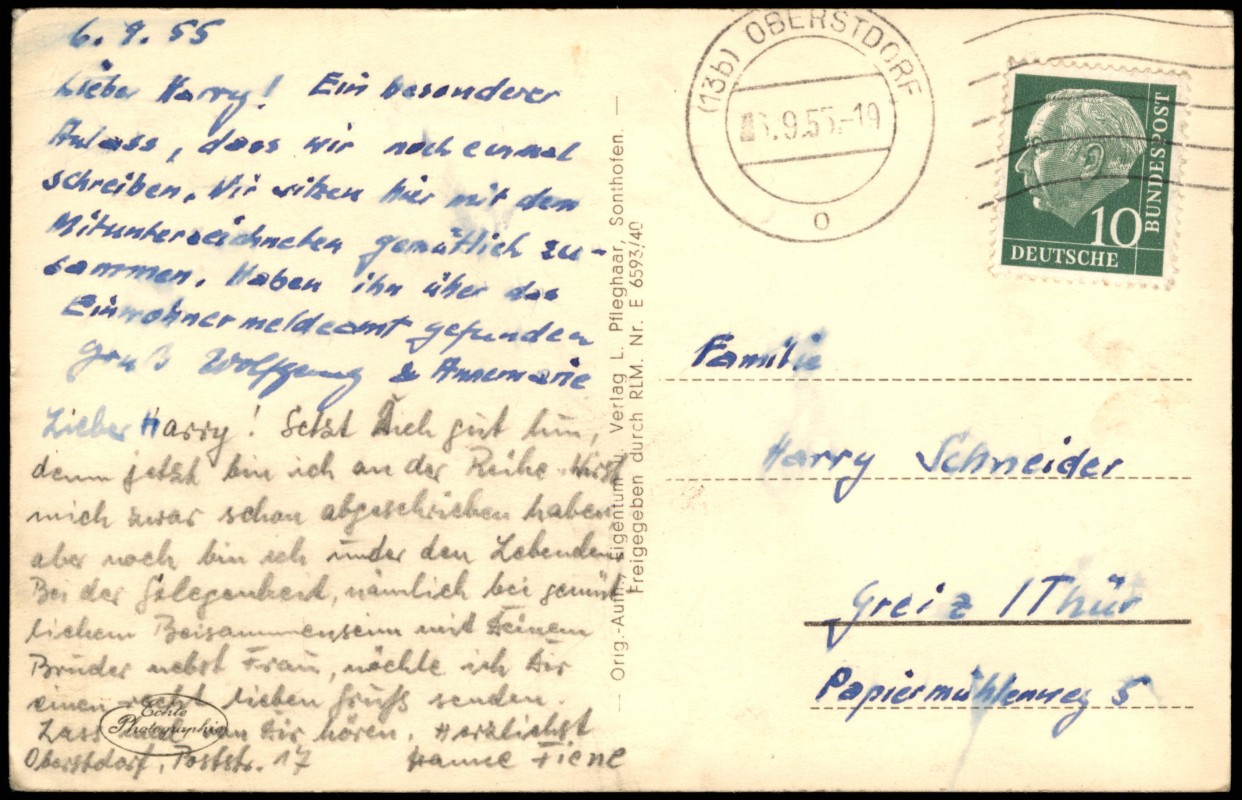 6.9.55
Lieber Harry! Ein besonderer
Anlass, dass wir noch einmal
schreiben. Wir sitzen hier mit dem
Mitunterzeichneten gemütlich zu-
sammen. Haben ihn über das
Einwohnermeldeamt gefunden
Gruß Wolfgang & Annemarie
Lieber Harry! Setzt Dich gut hin,
denn jetzt bin ich an der Reihe. Wirst
mich zwar schon abgeschrieben haben,
aber noch bin ich under den Lebenden
Bei der Gelegenheit, nämlich bei gemüt-
lichem Beisammensein mit Deinem
Bruder nebst Frau, möchte ich Dir
einen recht lieben Gruß senden.
Lass mal von Dir hören. Herzlichst
Oberstdorf, Poststr. 17 Hanne Fiene
Echte
Photographie
Orig.-Aufn., Eigentum u. Verlag L. Pfleghaar, Sonthofen.
Freigegeben durch RLM. Nr. E 6593/40
(13b) OBERSTDORF
6.9.55.-19
o
10
DEUTSCHE
BUNDESPOST
Familie
Harry Schneider
Greiz /Thür
Papiermühlenweg 5